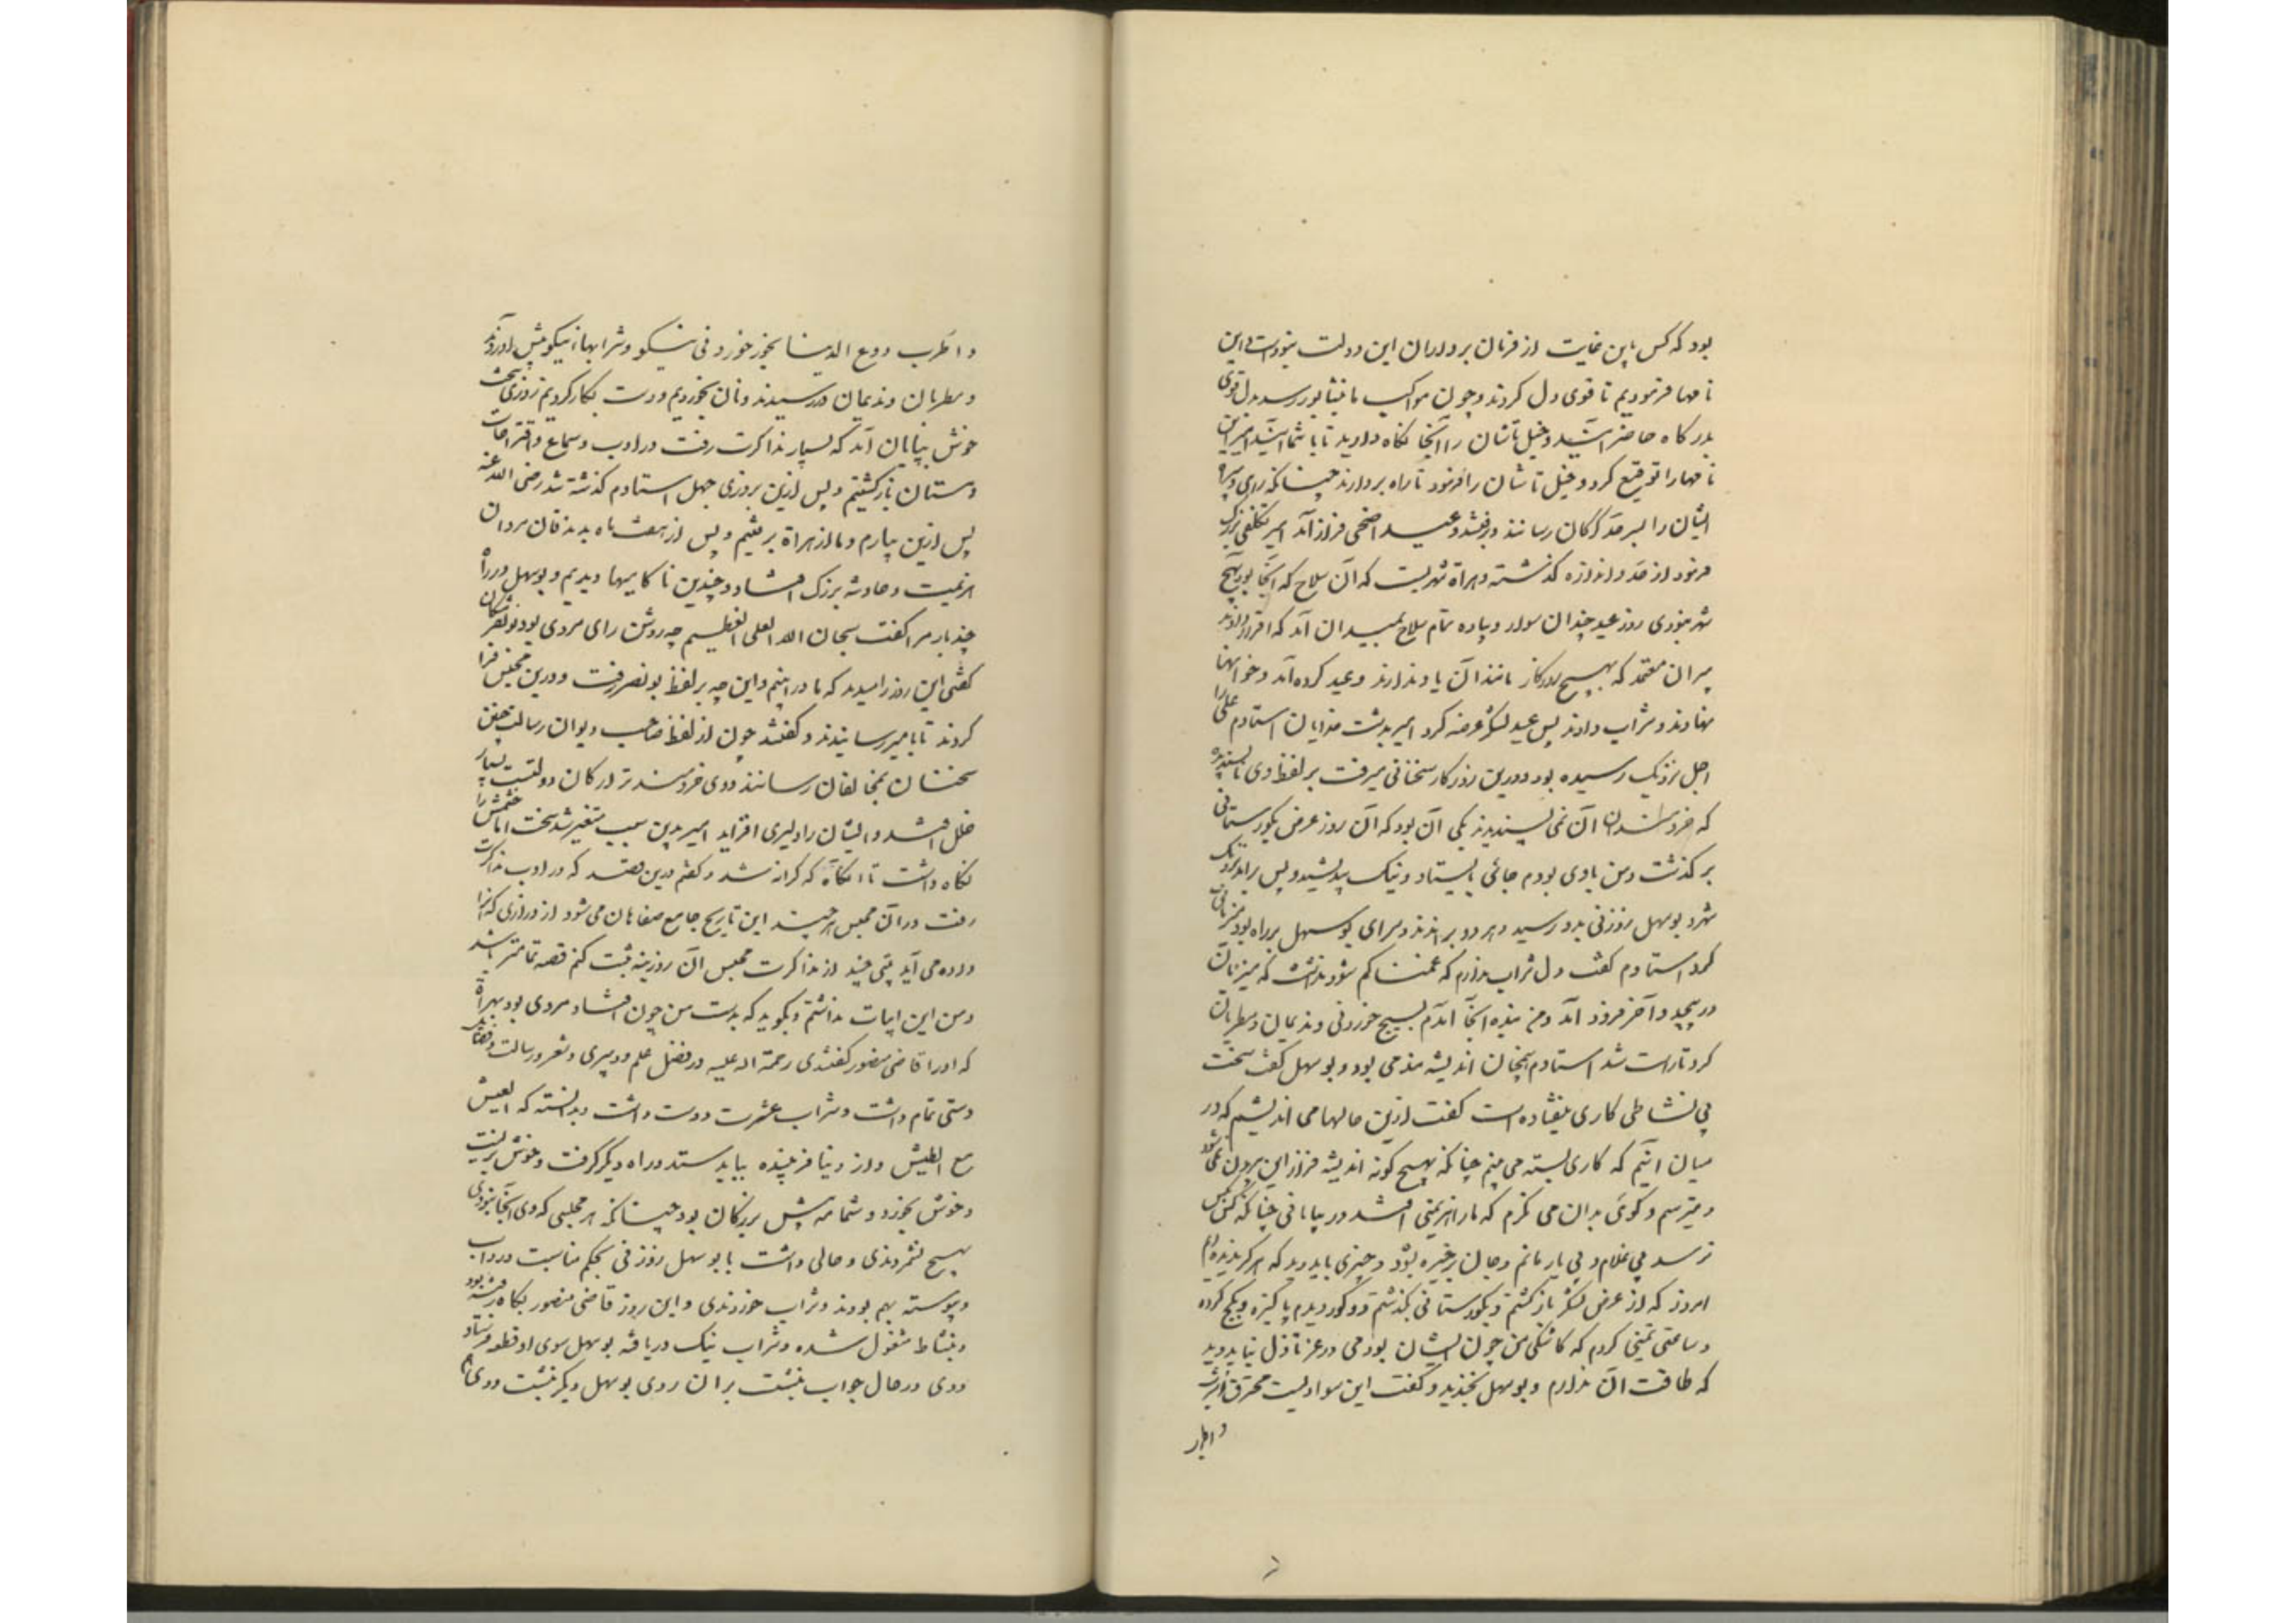 بود که کس باین غایت از فرمان برداران این دولت نبوده است و این
نامها فرمودیم تا قوی دل کردند و چون مواکب ما بنشابور رسد بدل قوی
بدرگاه حاضر آیند و خیل تاشان را آنجا نگاه دارید تا با شما آیند امیر این
نامها را توقیع کرد و خیل تاشان را فرمود تا راه بردارند چنانکه از ری و سپر
ایشان را بسر حد گرگان رسانند و برفتند و عید اضحی فراز آمد امیر تکلفی بزرگ
فرمود از حد و اندازه گذشته و هراة شهریست که آن سلاح که آنجا بود بهیچ
شهر نبودی روز عید چندان سوار و پیاده تمام سلاح بمیدان آمد که اقرار دادند
پیران معتمد که بهیچ روزگار مانند آن یاد ندارند و عید کرده آمد و خوانها
نهادند و شراب دادند پس عید لشکر عرضه کرد امیر بدشت خدایان استادم را
اجل نزدیک رسیده بود و درین روزگار سخنانی میرفت بر لفظ وی ناپسندیده
که خردمندان آن نمی‌پسندیدند یکی آن بود که آن روز عرض بگورستانی
برگذشت و من با وی بودم جائی بایستاد و نیک بیندیشید و پس براند نزدیک
شهر بوسهل زوزنی بدو رسید و هر دو براندند و سرای بوسهل بر راه بود میزبانی
کرد استادم گفت دل شراب ندارم که غمناکم سود نداشت که میزبان
در پیچید و آخر فرود آمد و من نیز آنجا آمدم بسیج خوردنی و ندیمان و مطربان
کرد تا راست شد استادم همچنان اندیشه‌مند می بود و بوسهل گفت سخت
بی نشاطی کاری نیفتاده است گفت ازین حالها می اندیشم که در
میان آنیم که کاری بسته می بینم چنانکه بهیچ گونه اندیشه من ازین بیرون نمی شود
و میترسم و گوئی بدان می نگرم که ما را هزیمتی افتد در بیابانی چنانکه کس بکس
نرسد بی غلام و بی یار مانم و جان بر خیره بشود و چیزی باید دید که هرگز ندیده ام
امروز که از عرض لشکر بازگشتم و بگورستانی بگذشتم دو گور دیدم پاکیزه و بگچ کرده
و ساعتی تمنی کردم که کاشکی من چون ایشان بودمی در عز تا ذل نباید دید
که طاقت آن ندارم و بوسهل بخندید و گفت این سوادیست محترق اشرب
و اطرب
و اطرب و دع الدنیا بخور خوردنی نیکو و شرابها نیکو پیش آوردند
و مطربان و ندیمان در رسیدند و نان بخوردیم و دست بکار کردیم و روزی سخت
خوش بپایان آمد که بسیار مذاکرت رفت در ادب و سماع و اقتراحات
و مستان بازگشتیم و پس ازین بروزی چهل استادم گذشته شد رضی الله عنه
پس ازین بیارم و ما از هراة برفتیم و پس از هفت ماه بدندانقان مردان
هزیمت و حادثه بزرگ افتاد و چندین ناکامیها دیدیم و بوسهل در راه
چند بار مرا گفت سبحان الله العلی العظیم چه روشن رای مردی بود بونصر مشکان
گفتی این روز را میدید که ما درانیم و این چه بر لفظ بونصر رفت و درین مجلس فرا
کردند تا بامیر رسانیدند و گفتند چون از لفظ صاحب دیوان رسالت چنین
سخنان بمخالفان رسانند و وی خردمندتر ارکان دولتست بسیار
خلل افتد و ایشان را دلیری افزاید امیر بدین سبب متغیر شد سخت اما خشمش را
نگاه داشت تا آنگاه که کرانه شد و گفتم درین قصه که در ادب مذاکرت
رفت در آن مجلس هر چند این تاریخ جامع سفاهان می شود از درازی که آنرا
داده می آید بیتی چند از مذاکرت مجلس آن روزینه ثبت کنم قصه تمامتر باشد
و من این ابیات نداشتم و بگویم که بدست من چون افتاد مردی بود بهراة
که او را قاضی منصور گفتندی رحمة الله علیه در فضل علم و دبیری و شعر و رسالت و فضائل
دستی تمام داشت و شراب و عشرت دوست داشت و بدانسته که العیش
مع الطیش و از دنیا فریبنده بباید ستد و راه دیگر گرفت و خوش بزیست
و خوش بخورد و شمامه پیش بزرگان بود چنانکه هر مجلسی که وی آنجا نبودی
بهیچ نشمردندی و حالی داشت با بوسهل زوزنی بحکم مناسبت در آداب
و پیوسته بهم بودند و شراب خوردندی و این روز قاضی منصور پگاه رفته بود
و بنشاط مشغول شده و شراب نیک دریافته بوسهل سوی او قطعه فرستاد
و وی در حال جواب بنبشت بران روی بوسهل دیگر نبشت و وی هم